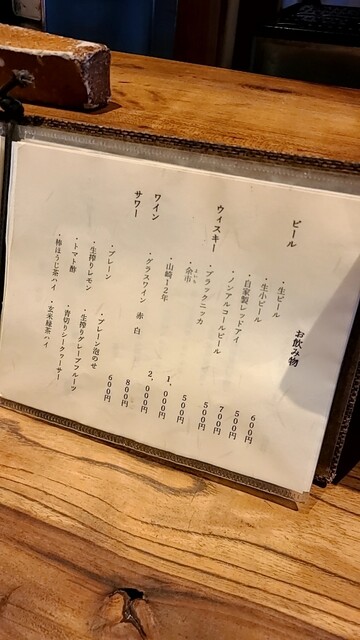 お飲み物
ビール
・生ビール 600円
・生小ビール 500円
・自家製レッドアイ 700円
・ノンアルコールビール 500円
ウィスキー
・ブラックニッカ 500円
よいち
・余市 1,000円
・山崎12年 2,000円
ワイン
・グラスワイン 赤 白 800円
サワー 600円
・プレーン ・プレーン泡のせ
・生搾りレモン ・生搾りグレープフルーツ
・トマト酢 ・青切りシークヮーサー
・棒ほうじ茶ハイ ・玄米緑茶ハイ